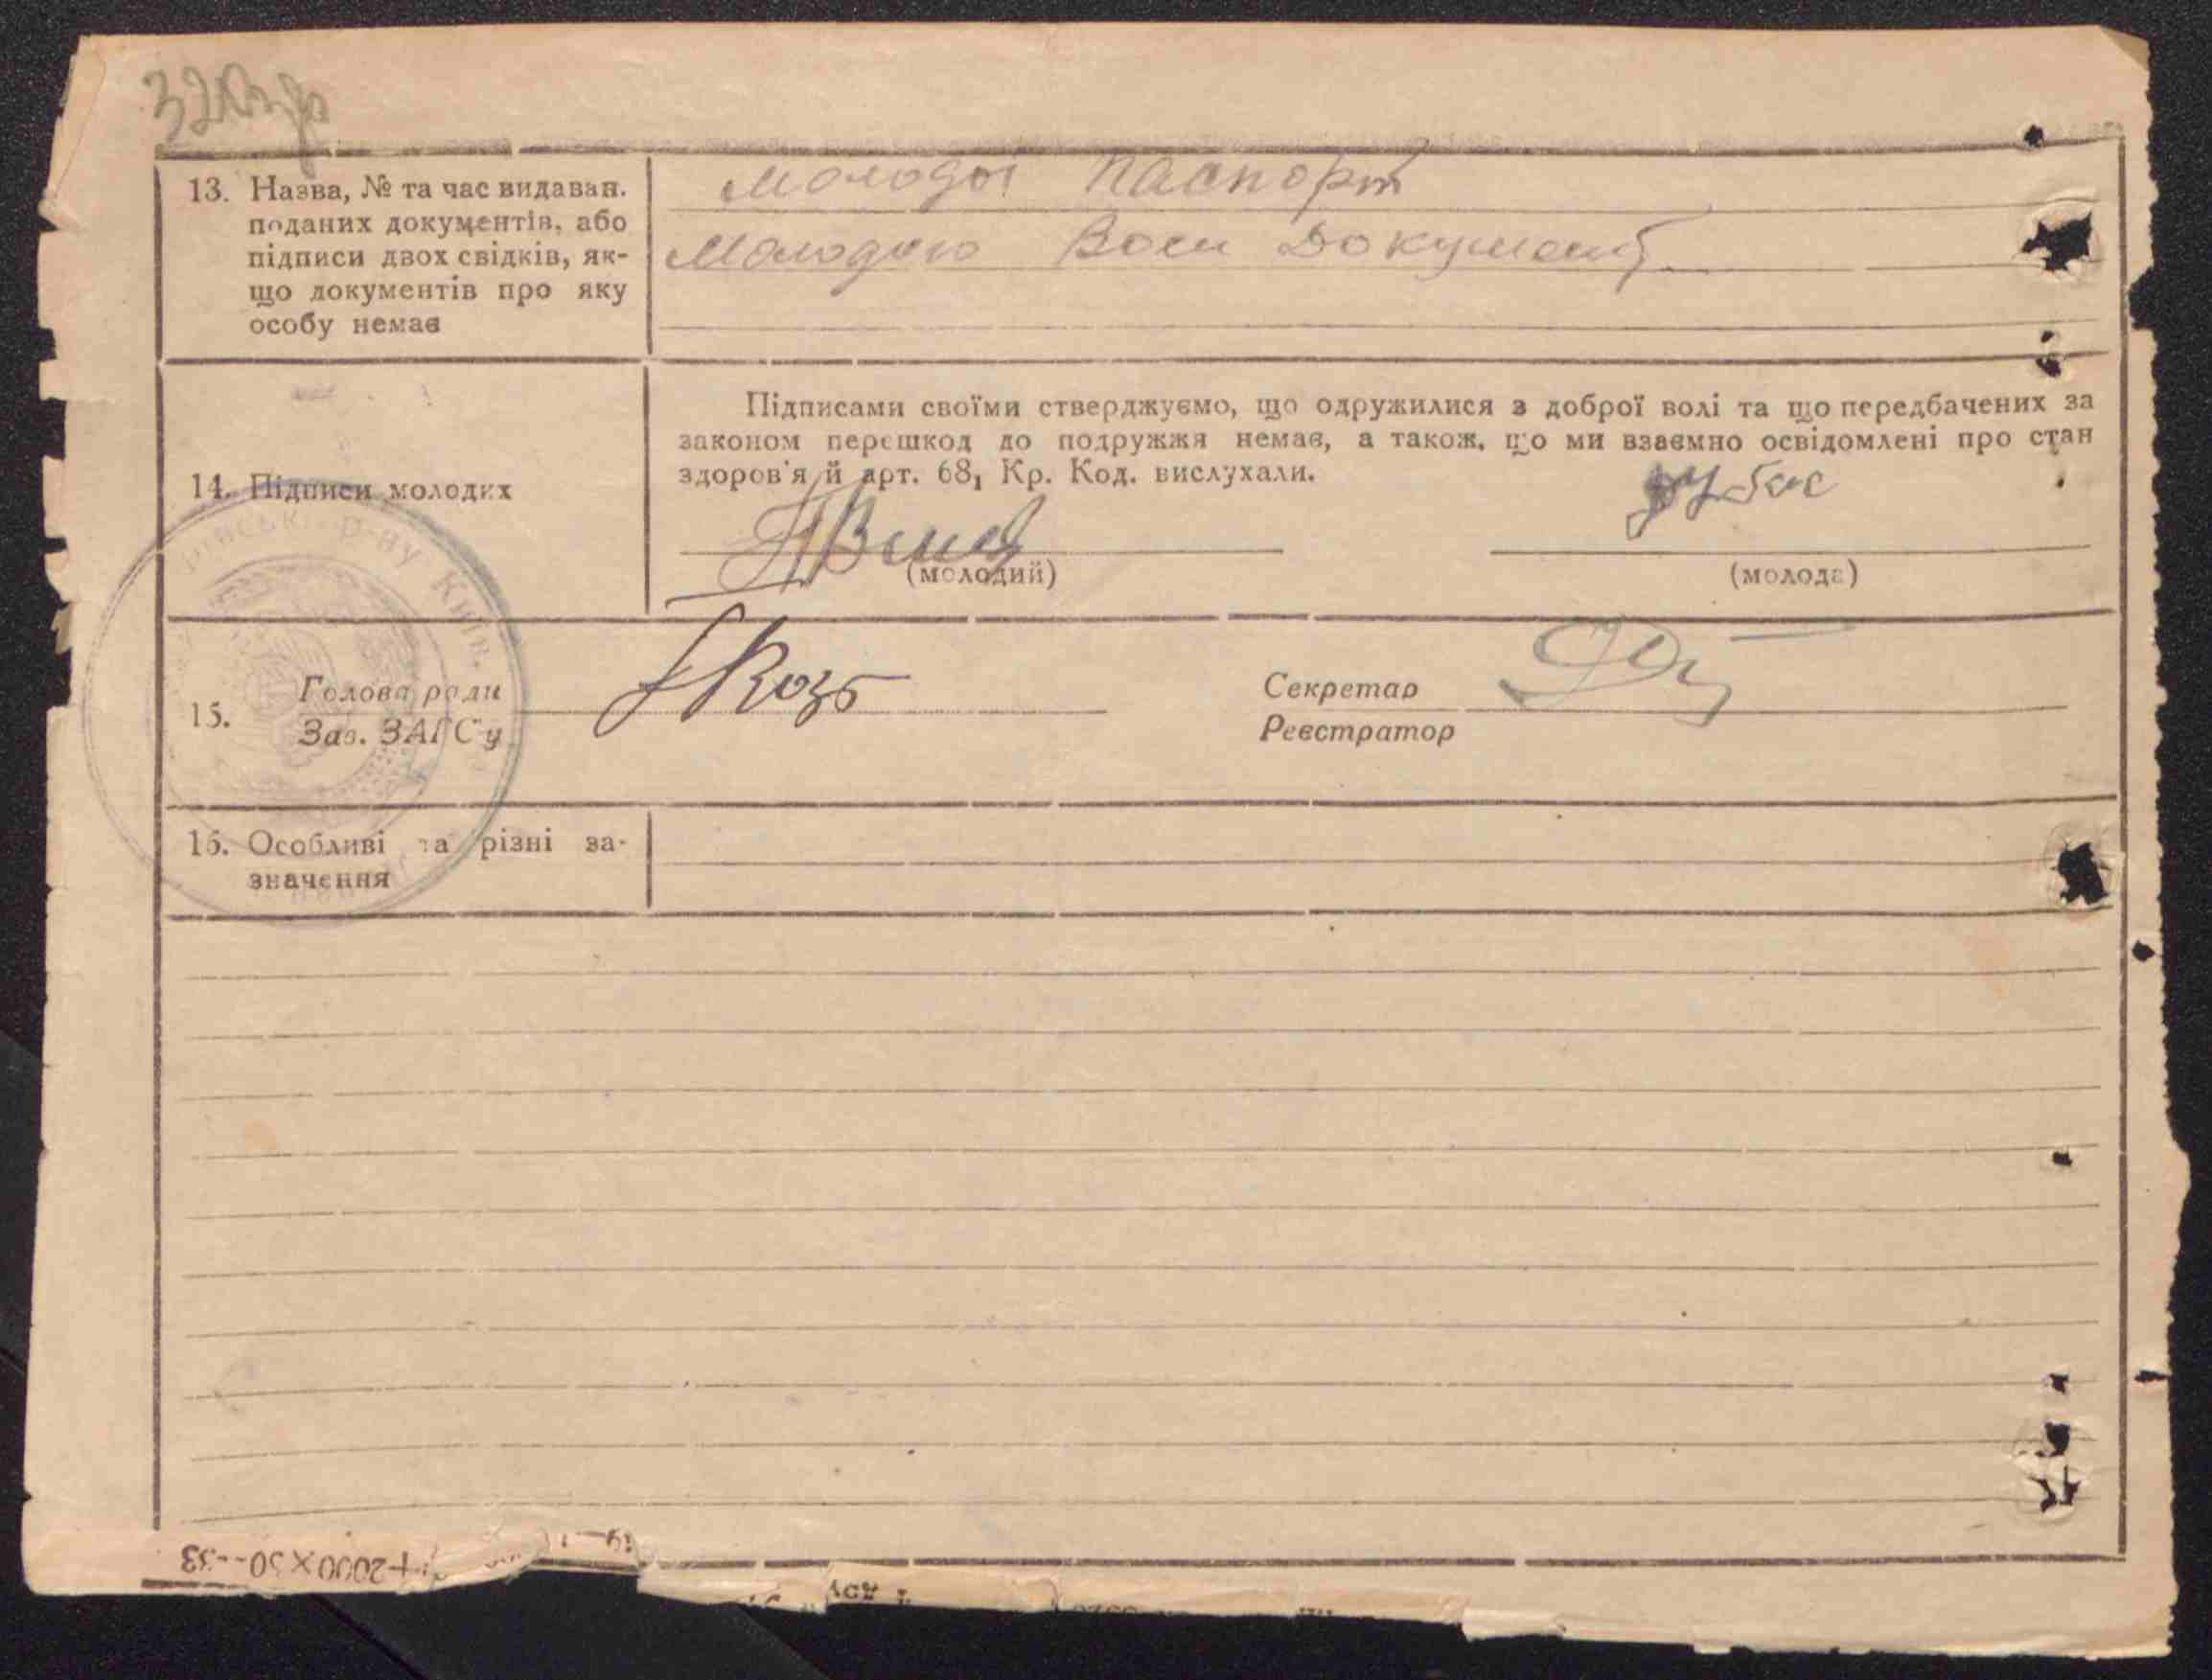 13. Назва, № та час видаван.
поданих документів, або
підписи двох свідків, як-
що документів про яку
особу немає
Молодої паспорт
Молодого Воєн Документ
14. Підписи молодих
Підписами своїми стверджуємо, що одружилися з доброї волі та що передбачених за
законом перешкод до подружжя немає, а також, що ми взаємно освідомлені про стан
здоров'я й арт. 68₁ Кр. Код. вислухали.
(молодий)
(молода)
р-ну Київ.
15.
Голова ради
Зав. ЗАГС'у
Секретар
Реєстратор
16. Особливі та різні за-
значення
+2000×50--33